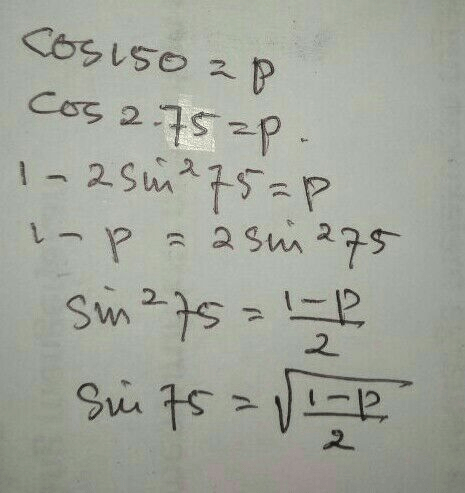 cos 150 = p
cos 2.75 = p.
1 - 2 sin²75 = p
1 - p = 2 sin²75
sin²75 = (1-p)/2
sin 75 = √((1-p)/2)